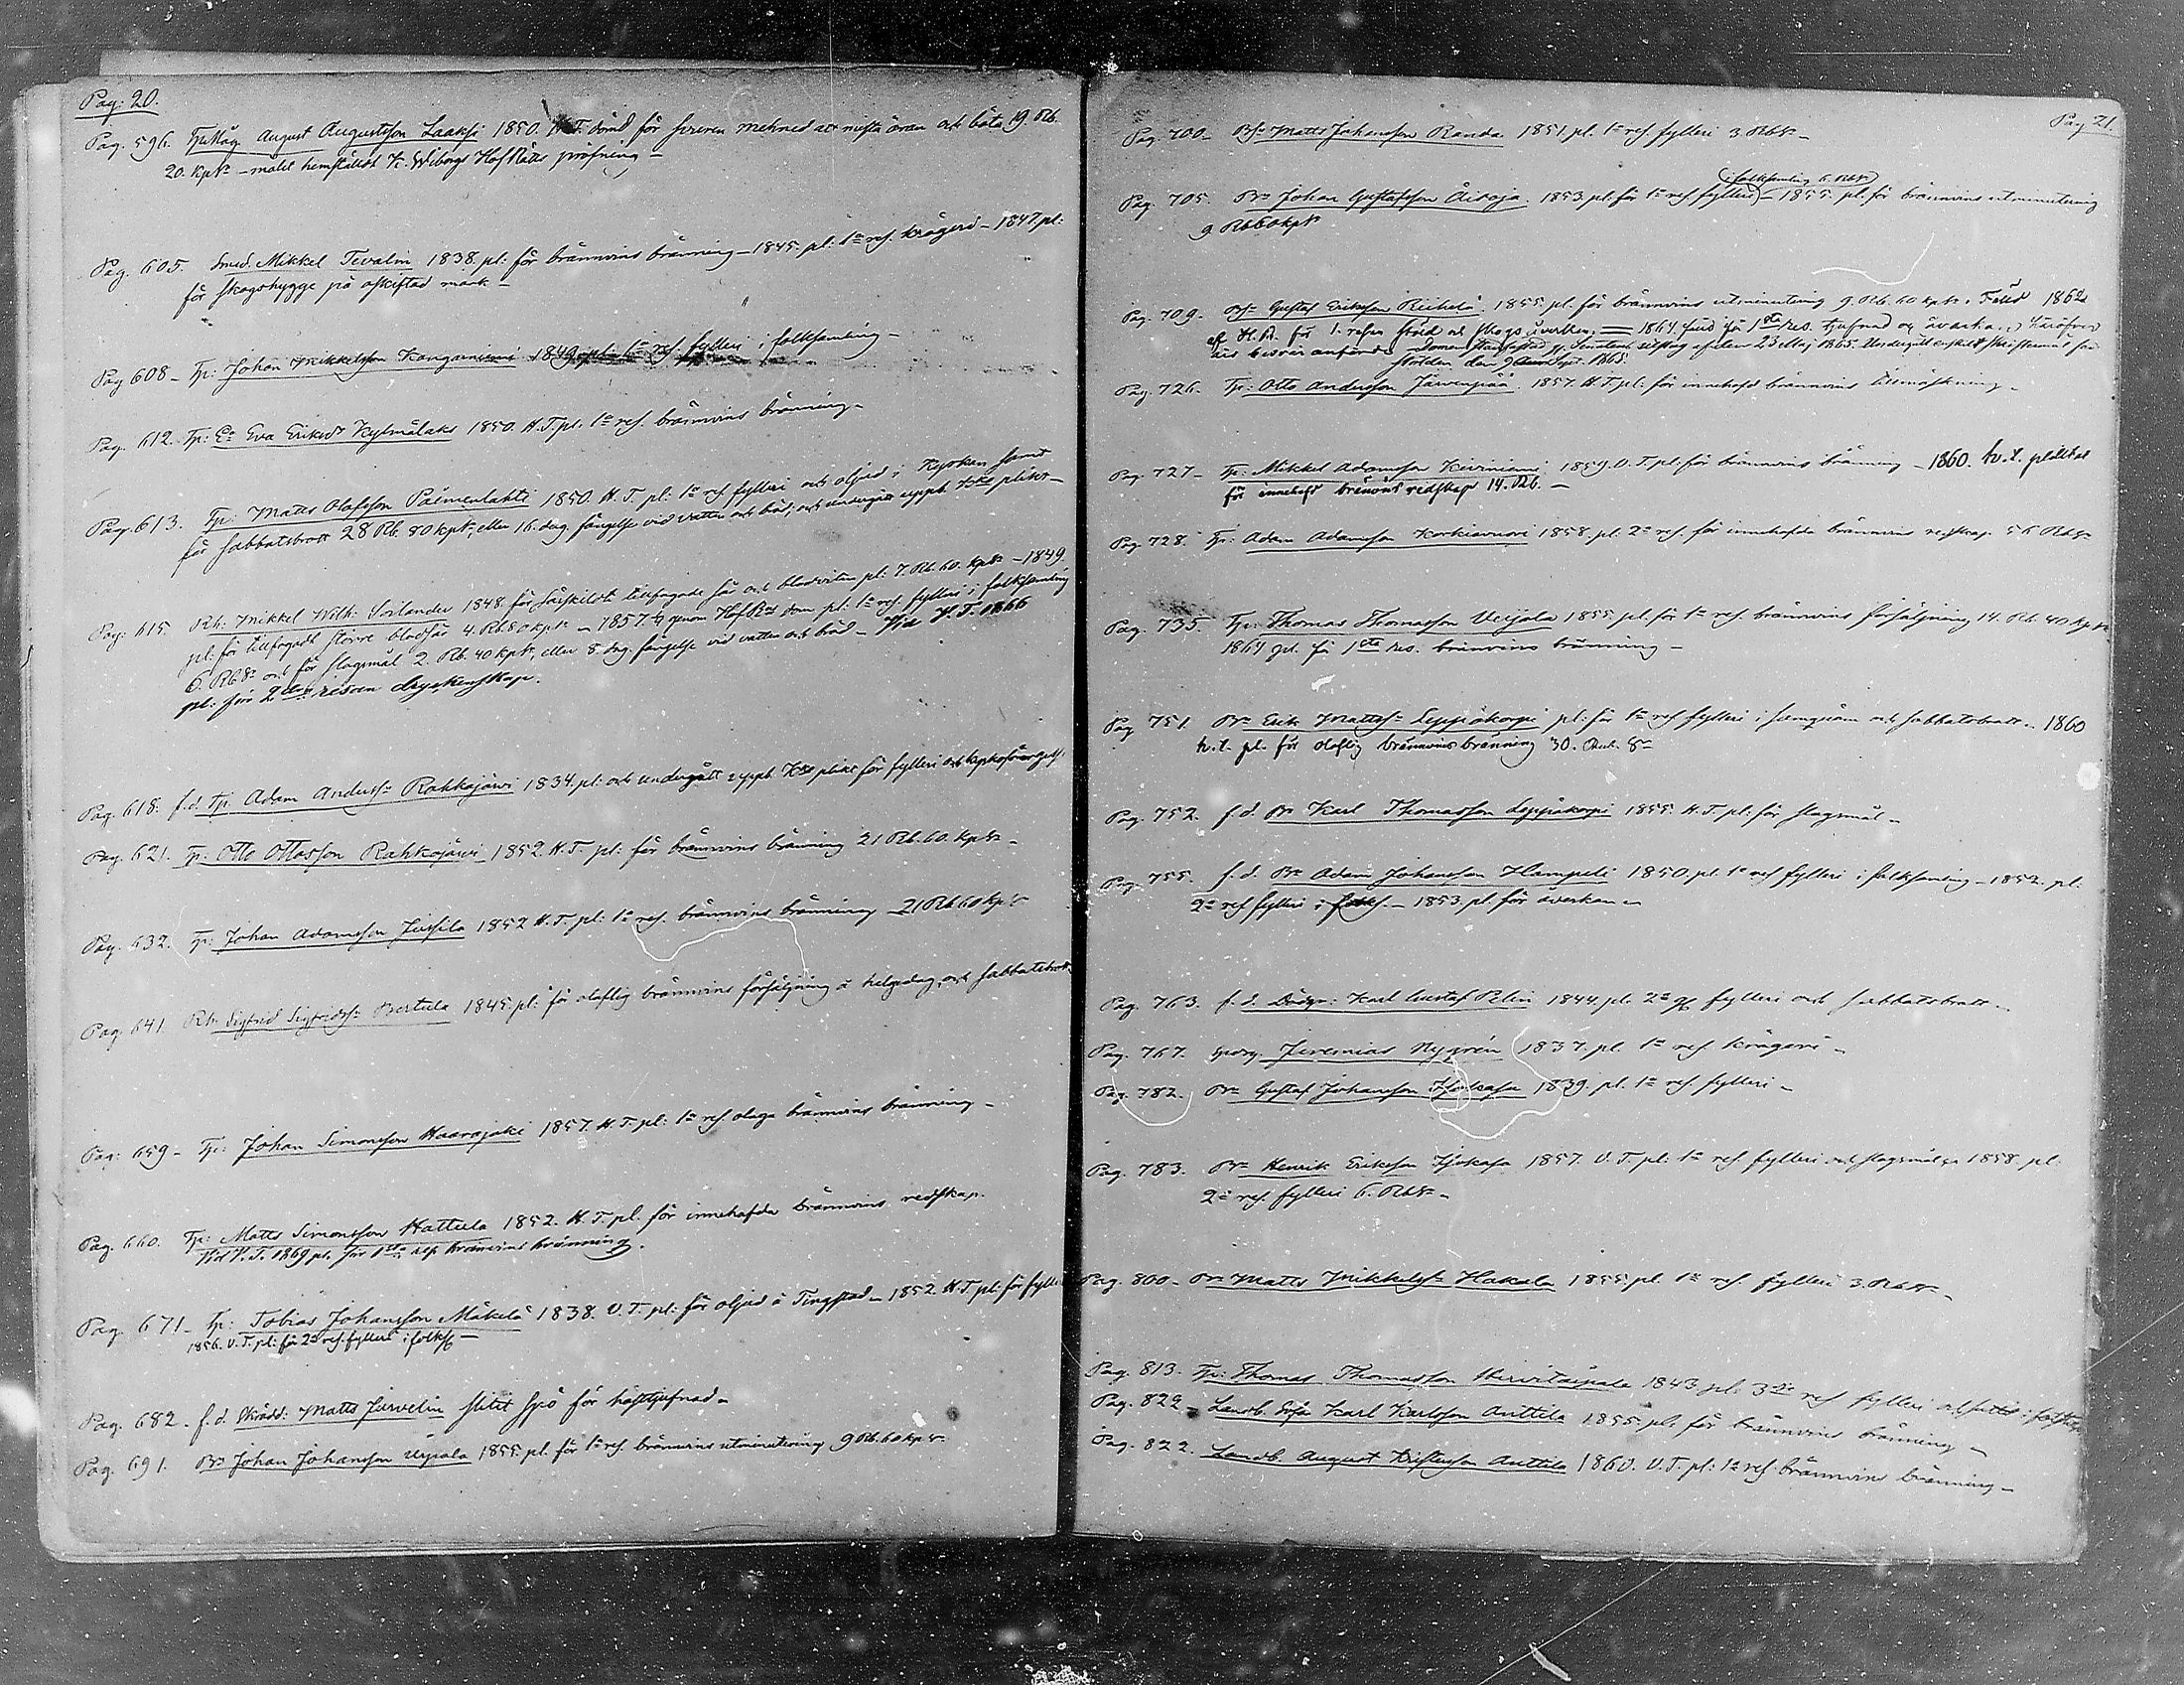 Pag: 20.
Pag. 596. August Augustsson Laaksi 1850. H.T. dömd för svuren mehned att mista äran och böta 19. Rb.
20. kps – målet hemstäldt K. Wiborgs HofRätts pröfning –
Pag. 605. Smed. Mikkel Tevalin 1838. pl: för brännvins bränning – 1845. pl: 1a res. krögeri – 1847. pl:
för skogshygge på oskiftad mark –
Pag 608 – Tp: Johan Mikkelsson Kangasniemi 1849. pl: 1a res. fylleri i folksamling –
Pag. 612. Tp: Ea Eva Eriksdr Kylmälaks 1850. H.T. pl. 1a res. brännvins bränning –
Pag. 613. Tp: Matts Olofsson Palmenlahti 1850. H.T. pl: 1a res fylleri och oljud i Kyrkan samt
för sabbatsbrott 28 Rb. 80 kps, eller 16. dag. fängelse vid vatten och bröd, och undergått uppb. plikt –
Pag: 615. Rh: Mikkel Wilh: Sorlander 1848. för särskildt tillfogade sår och blodviten pl: 7. Rb. 60. kps – 1849.
pl: för tillfogadt större blodsår 4. Rb. 80 kps – 1857. genom HofRts dom pl: 1a res fylleri i folksamling
6. Rbs och för slagsmål 2. Rb. 40 kps, eller 8. dag. fängelse vid vatten och bröd – Vid V.T. 1866
pl: för 2dra resan dryckenskap.
Pag. 618. f.d. Tp. Adam Anderss: Rahkajärvi 1834. pl: och undergått uppb. plikt för fylleri och
Pag. 621. Tp. Otto Ottosson Rahkajärvi 1852. H.T. pl: för brännvins bränning 21 Rb. 60. kps –
Pag. 632. Tp: Johan Adamsson Jussila 1852 H.T. pl: 1a res. brännvins bränning 21 Rb 60 kps
Pag. 641. Rh. Sigfrid Sigfridss: Bertula 1845. pl: för olaflig brännvins försäljning å helgedag och sabbatsbrott
Pag: 659 – Tp: Johan Simonsson Haarajoki 1857. H.T. pl: 1a res. olaga brännvins bränning –
Pag. 660. Tp: Matts Simonsson Hattula 1852. H.T. pl. för innehafda brännvins redskap.
Vid V.T. 1869 pl. för 1sta res brännvins bränning.
Pag. 671 – Tp: Tobias Johansson Mäkelä 1838. V.T. pl: för oljud å Tingstad – 1852. H.T. pl: för fylleri
1856. V.T. pl: för 2a res. fylleri i folks.
Pag. 682 – f.d. Skrädd: Matts Jurvelin slitit spö för hästtjufnad –
Pag. 691. Bn Johan Johansson Uypala 1855. pl. för 1a res. brännvins utminutering 9 Rb. 60 kps
Pag 21.
Pag. 700 – Matts Johansson Randa 1851. pl. 1a res. fylleri 3 Rbs –
i folksamling 6. Rbs
Pag. 705. Bn Johan Gustafsson Äitoja 1853. pl. för 1a res fylleri – 1855. pl. för brännvins utminutering
9 Rb 60 kps
Pag. 709. Gustaf Eriksson Riihelä 1855. pl. för brännvins utminutering 9. Rb. 60 kps. Fälld 1862
af H.R. för 1. resan stöld och skogsåverkan. = 1864. för 1sta res. tjufnad och åverkan, häröfver
besvär anförde, domen stadfästad g. Senatens utslag af den 23 Maj 1865. Undergått enskilt skriftermål för
stölden den 9 Sept. 1865.
Pag. 726. Tp: Otto Andersson Järvenpää. 1857. H.T. pl: för innehafd brännvins tillmäskning –
Pag. 727 – Tp: Mikkel Adamsson Keiviniemi 1859. V.T. pl. för brännvins bränning – 1860. h.t. pliktat
för innehafd brännvins redskap 14. Rb. –
Pag. 728. Tp: Adam Adamsson Korkiavuori 1858. pl. 2a res. för innehafda brännvins redskap 56 Rbs
Pag. 735. Tp: Thomas Thomasson Veijola 1855. pl. för 1a res. brännvins försäljning 14. Rb. 40 kps
1864 pl. för 1sta res. brännvins bränning –
Pag 751. Bn Erik Mattss: Leppäkorpi pl: för 1a res fylleri i samqväm och sabbatsbrott – 1860
h.t. pl. för olaflig brännvinsbränning 30. Rub. Sr
Pag. 752. f.d. Bn Karl Thomasson Leppäkorpi 1855. H.T. pl: för slagsmål –
Pag. 755. f.d. Bn Adam Johansson Hampeli 1850. pl. 1a res fylleri i folksamling – 1852. pl:
2a res fylleri i folks. – 1853. pl för åverkan –
Pag. 763. f.d. Karl Gustaf Pelin 1844. pl. 2a fylleri och sabbatsbrott –
Pag. 767. Jeremias Nygrén 1837. pl. 1a res krögeri –
Pag. 782. Bn Gustaf Johansson Isokasa 1839. pl. 1a res. fylleri –
Pag. 783. Bn Henrik Eriksson Isokasa 1857. V.T. pl: 1a res. fylleri och slagsmål 1858. pl:
2a res. fylleri 6. Rbs –
Pag. 800 – Bn Matts Mikkelss: Hakala 1855. pl. 1a res. fylleri 3. Rbs –
Pag. 813. Tp: Thomas Thomasson Hirvitaipale 1843. pl: 3dje res fylleri
Pag. 822 – Landb. Karl Karlsson Anttila 1855. pl: för brännvins bränning –
Pag. 822. Landb. August Anttila 1860. V.T. pl: 1a res. brännvins bränning –